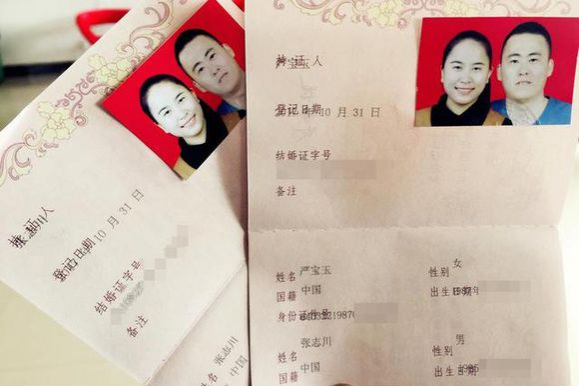 持证人
登记日期 10 月 31 日
结婚证字号
备注
持证人 严宝玉
登记日期 10 月 31 日
结婚证字号
备注
姓名 严宝玉 性别 女
国籍 中国 出生日期
身份证件号
姓名 张志川 性别 男
国籍 中国 出生日期